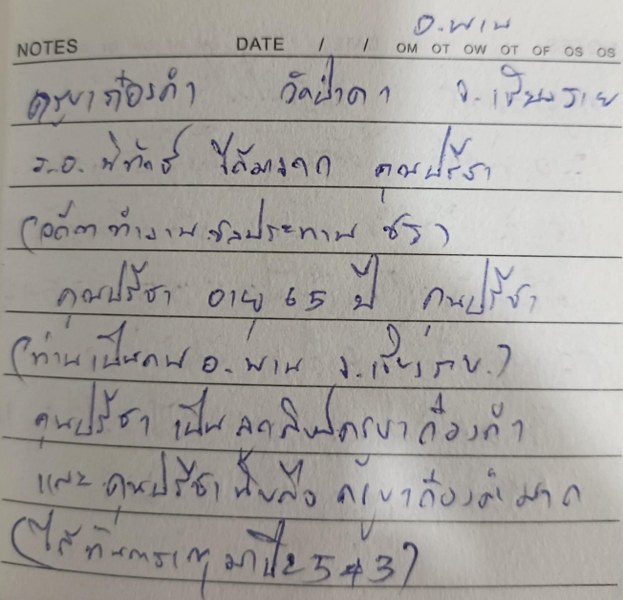 อ.พาน
NOTES DATE / / OM OT OW OT OF OS OS
ครูบาก๋องคำ วัดป่าคา จ.เชียงราย
ร.อ. พิทักษ์ ได้มาจาก คุณปรีชา
(อดีตทำงานชลประทาน ชรา)
คุณปรีชา อายุ 65 ปี คุณปรีชา
(ท่านเป็นคน อ.พาน จ.เชียงราย.)
คุณปรีชา เป็น ลูกศิษย์ครูบาก๋องคำ
และ คุณปรีชานับถือ ครูบาก๋องคำมาก
(ได้ มาปี 2543)